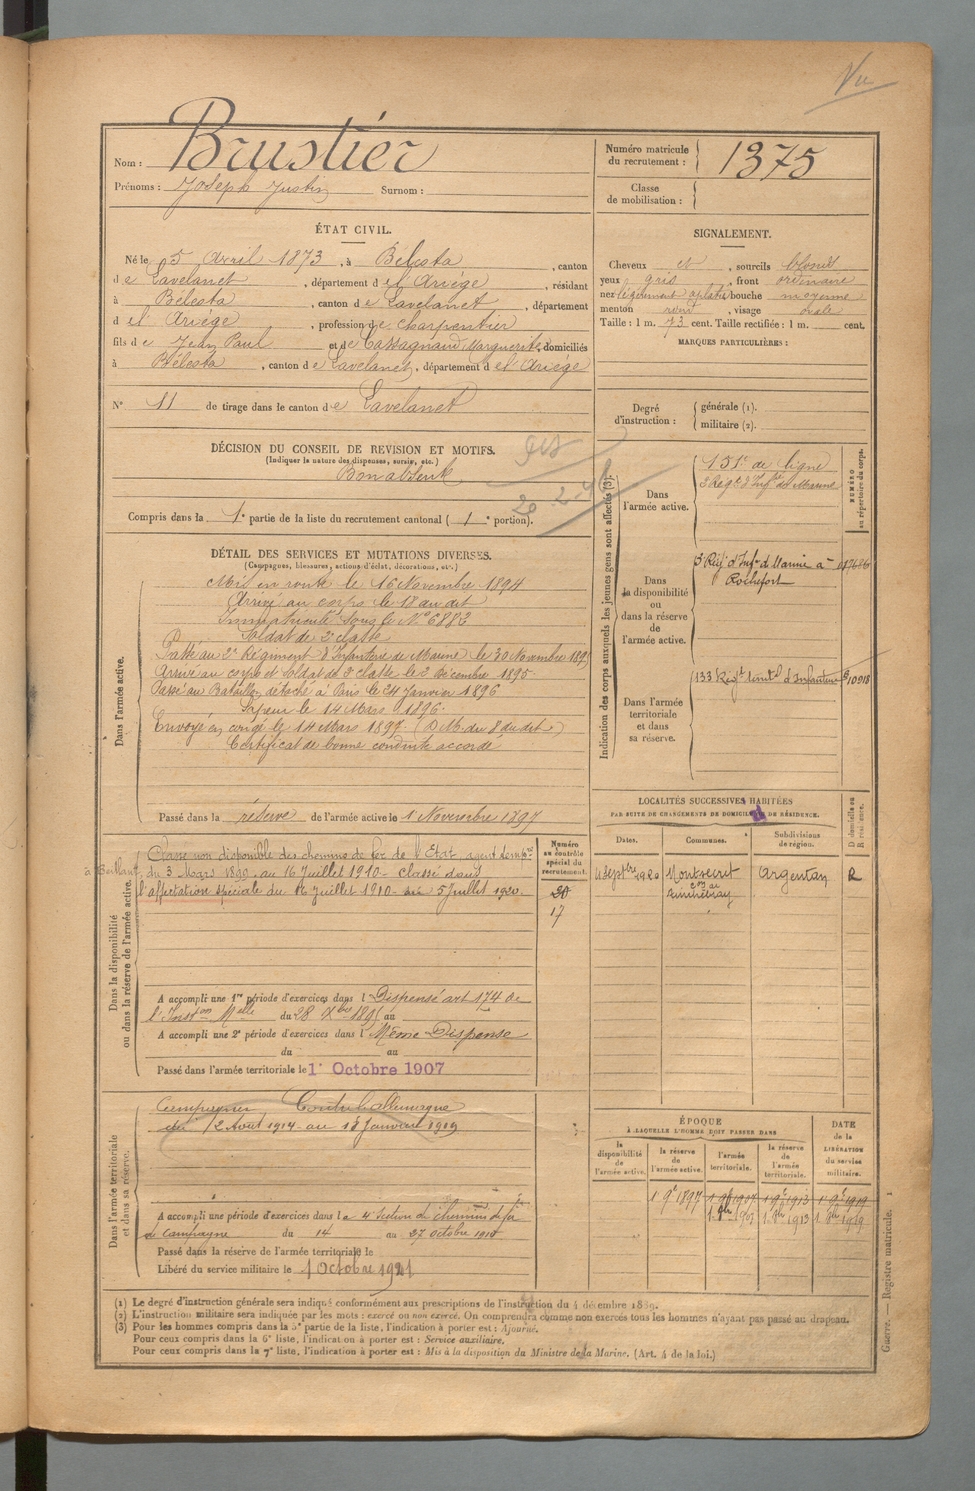 Vu
Nom : Brustier
Prénoms : Joseph Justin Surnom :
Numéro matricule du recrutement : 1375
Classe de mobilisation :
ÉTAT CIVIL.
Né le 5 Avril 1873, à Bélesta, canton
de Lavelanet, département de l'Ariége, résidant
à Bélesta, canton de Lavelanet, département
de l'Ariége, profession de charpentier
fils de Jean Paul et de Cassagnaud Marguerite, domiciliés
à Bélesta, canton de Lavelanet, département de l'Ariége
N° 11 de tirage dans le canton de Lavelanet
SIGNALEMENT.
Cheveux et, sourcils blonds
yeux gris, front ordinaire
nez légèrement aplati bouche moyenne
menton rond, visage ovale
Taille : 1 m. 73 cent. Taille rectifiée : 1 m. cent.
MARQUES PARTICULIÈRES :
Degré d'instruction : générale (1).
militaire (2).
DÉCISION DU CONSEIL DE REVISION ET MOTIFS.
(Indiquer la nature des dispenses, sursis, etc.)
Bon absent
Compris dans la 1e partie de la liste du recrutement cantonal ( 1e portion).
DÉTAIL DES SERVICES ET MUTATIONS DIVERSES.
(Campagnes, blessures, actions d'éclat, décorations, etc.)
Dans l'armée active.
Mis en route le 16 Novembre 1894
Arrivé au corps le 18 au dit
Immatriculé sous le N° 6882
Soldat de 2e classe
Passé au 2e Régiment d'Infanterie de Marine le 30 Novembre 1895
Arrivé au corps et soldat de 2e classe le 2 Décembre 1895
Passé au Bataillon détaché à Paris le 24 Janvier 1896
Sapeur le 14 Mars 1896
Envoyé en congé le 14 Mars 1897 (D. M. du 8 du dit)
Certificat de bonne conduite accordé
Passé dans la réserve de l'armée active le 1 Novembre 1897
Indication des corps auxquels les jeunes gens sont affectés (3).
NUMÉRO au répertoire du corps.
Dans l'armée active.
151e de ligne
2 Régt d'Infie de Marine
Dans la disponibilité ou dans la réserve de l'armée active.
3 Rég d'Infie de Marine à
Rochefort
Dans l'armée territoriale et dans sa réserve.
133 Régt territl d'Infanterie 10918
LOCALITÉS SUCCESSIVES HABITÉES
PAR SUITE DE CHANGEMENTS DE DOMICILE OU DE RÉSIDENCE.
Dates. Communes. Subdivisions de région. D domicile ou R résidence.
4 Septbre 1920 Montsecret Argentan R
con de
Tinchebray
Dans la disponibilité ou dans la réserve de l'armée active.
Numéro au contrôle spécial du recrutement.
20
17
Classé non disponible des chemins de fer de l'Etat agent
du 3 Mars 1899 au 16 Juillet 1910 - classé dans
l'affectation spéciale du 16 Juillet 1910 au 5 Juillet 1920
A accompli une 1re période d'exercices dans l Dispensé art 174 de
l'Instion Melle du 28 Xbre 1895 au
A accompli une 2e période d'exercices dans l Même Dispense
du au
Passé dans l'armée territoriale le 1er Octobre 1907
Dans l'armée territoriale et dans sa réserve.
Campagnes Contre l'allemagne
du 12 Aout 1914 au 18 Janvier 1919
A accompli une période d'exercices dans la 4 Section de chemins de fer
de campagne du 14 au 27 octobre 1910
Passé dans la réserve de l'armée territoriale le
Libéré du service militaire le 1 Octobre 1921
ÉPOQUE
À LAQUELLE L'HOMME DOIT PASSER DANS
la disponibilité de l'armée active. la réserve de l'armée active. l'armée territoriale. la réserve de l'armée territoriale.
DATE de la LIBÉRATION du service militaire.
1 9e 1897 1 9e 1907 1 9e 1913 1 9e 1919
1. 8bre 1907 1. 8bre 1913 1. 8bre 1919
(1) Le degré d'instruction générale sera indiqué conformément aux prescriptions de l'instruction du 4 décembre 1889.
(2) L'instruction militaire sera indiquée par les mots : exercé ou non exercé. On comprendra comme non exercés tous les hommes n'ayant pas passé au drapeau.
(3) Pour les hommes compris dans la 5e partie de la liste, l'indication à porter est : Ajourné.
Pour ceux compris dans la 6e liste, l'indication à porter est : Service auxiliaire.
Pour ceux compris dans la 7e liste, l'indication à porter est : Mis à la disposition du Ministre de la Marine. (Art. 4 de la loi.)
Guerre. — Registre matricule. 1